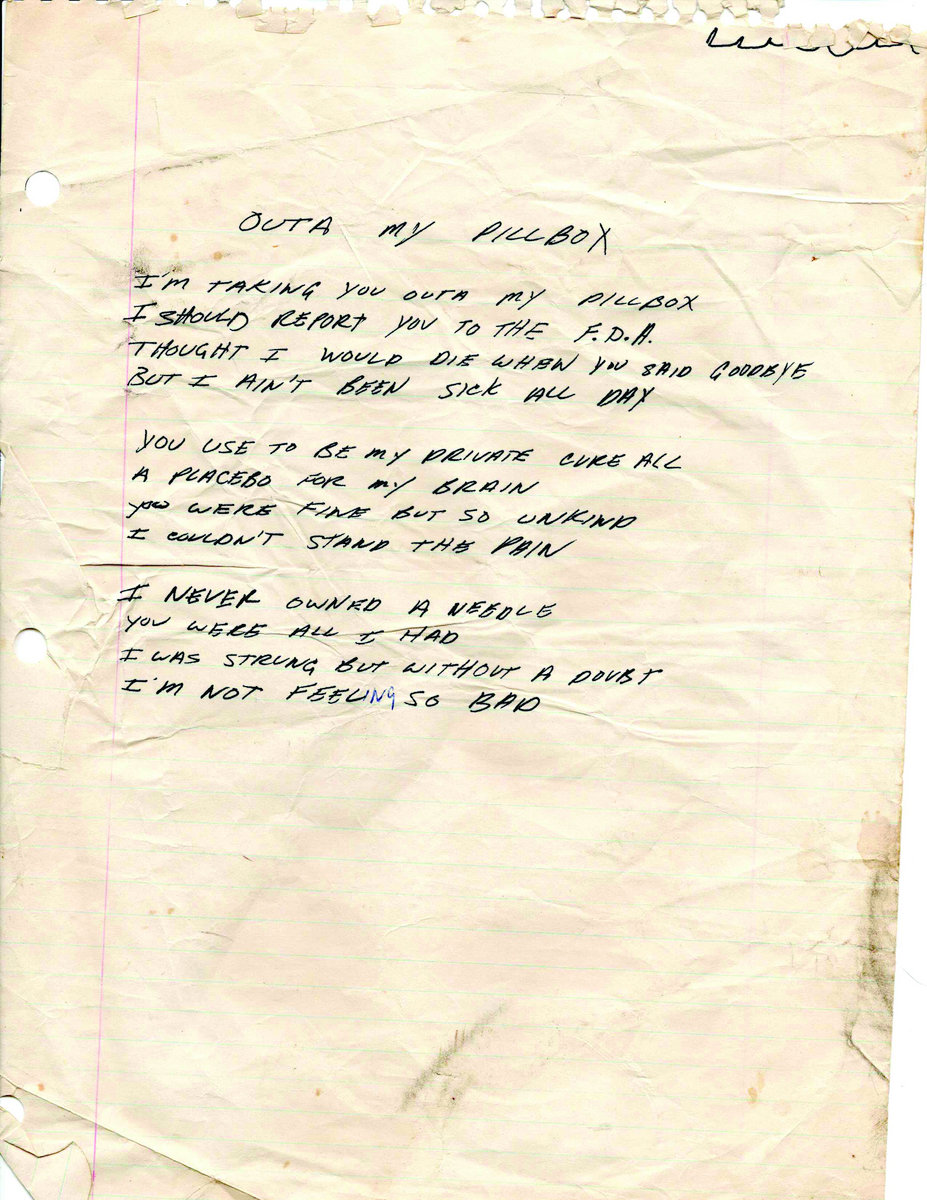 OUTA MY PILLBOX
I'M TAKING YOU OUTA MY PILLBOX
I SHOULD REPORT YOU TO THE F.D.A.
THOUGHT I WOULD DIE WHEN YOU SAID GOODBYE
BUT I AIN'T BEEN SICK ALL DAY
YOU USE TO BE MY PRIVATE CURE ALL
A PLACEBO FOR MY BRAIN
YOU WERE FINE BUT SO UNKIND
I COULDN'T STAND THE PAIN
I NEVER OWNED A NEEDLE
YOU WERE ALL I HAD
I WAS STRUNG BUT WITHOUT A DOUBT
I'M NOT FEELING SO BAD